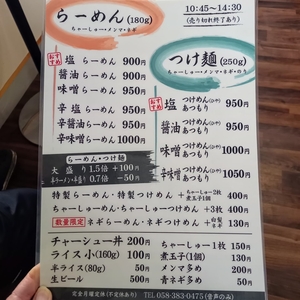 らーめん(180g)
ちゃーしゅー・メンマ・ネギ
10:45〜14:30
(売り切れ終了あり)
おすすめ 塩 らーめん 900円
醤油 らーめん 900円
味噌 らーめん 950円
辛塩 らーめん 950円
辛醤油 らーめん 950円
辛味噌 らーめん 1000円
つけ麺(250g)
ちゃーしゅー・メンマ・ネギ・のり
おすすめ 塩 つけめん(ひや) あつもり 950円
醤油 つけめん(ひや) あつもり 950円
味噌 つけめん(ひや) あつもり 1000円
辛味噌 つけめん あつもり 1050円
らーめん・つけ麺
大盛り 1.5倍 +100円
0.7倍 −50円
特製らーめん・特製つけめん +ちゃーしゅー2枚 煮玉子1個 400円
ちゃーしゅーめん・ちゃーしゅーつけめん +3枚 400円
数量限定 ネギらーめん・ネギつけめん +白髪ネギ 300円
チャーシュー丼 200円
ライス小(160g) 100円
半ライス(80g) 50円
生ビール 500円
ちゃーしゅー1枚 150円
煮玉子(1個) 130円
メンマ多め 200円
青ネギ多め 50円
定休月曜定休(不定休あり) TEL.058-383-0475(音声のみ)